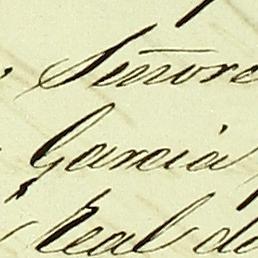 Señore
Garcia
Real de